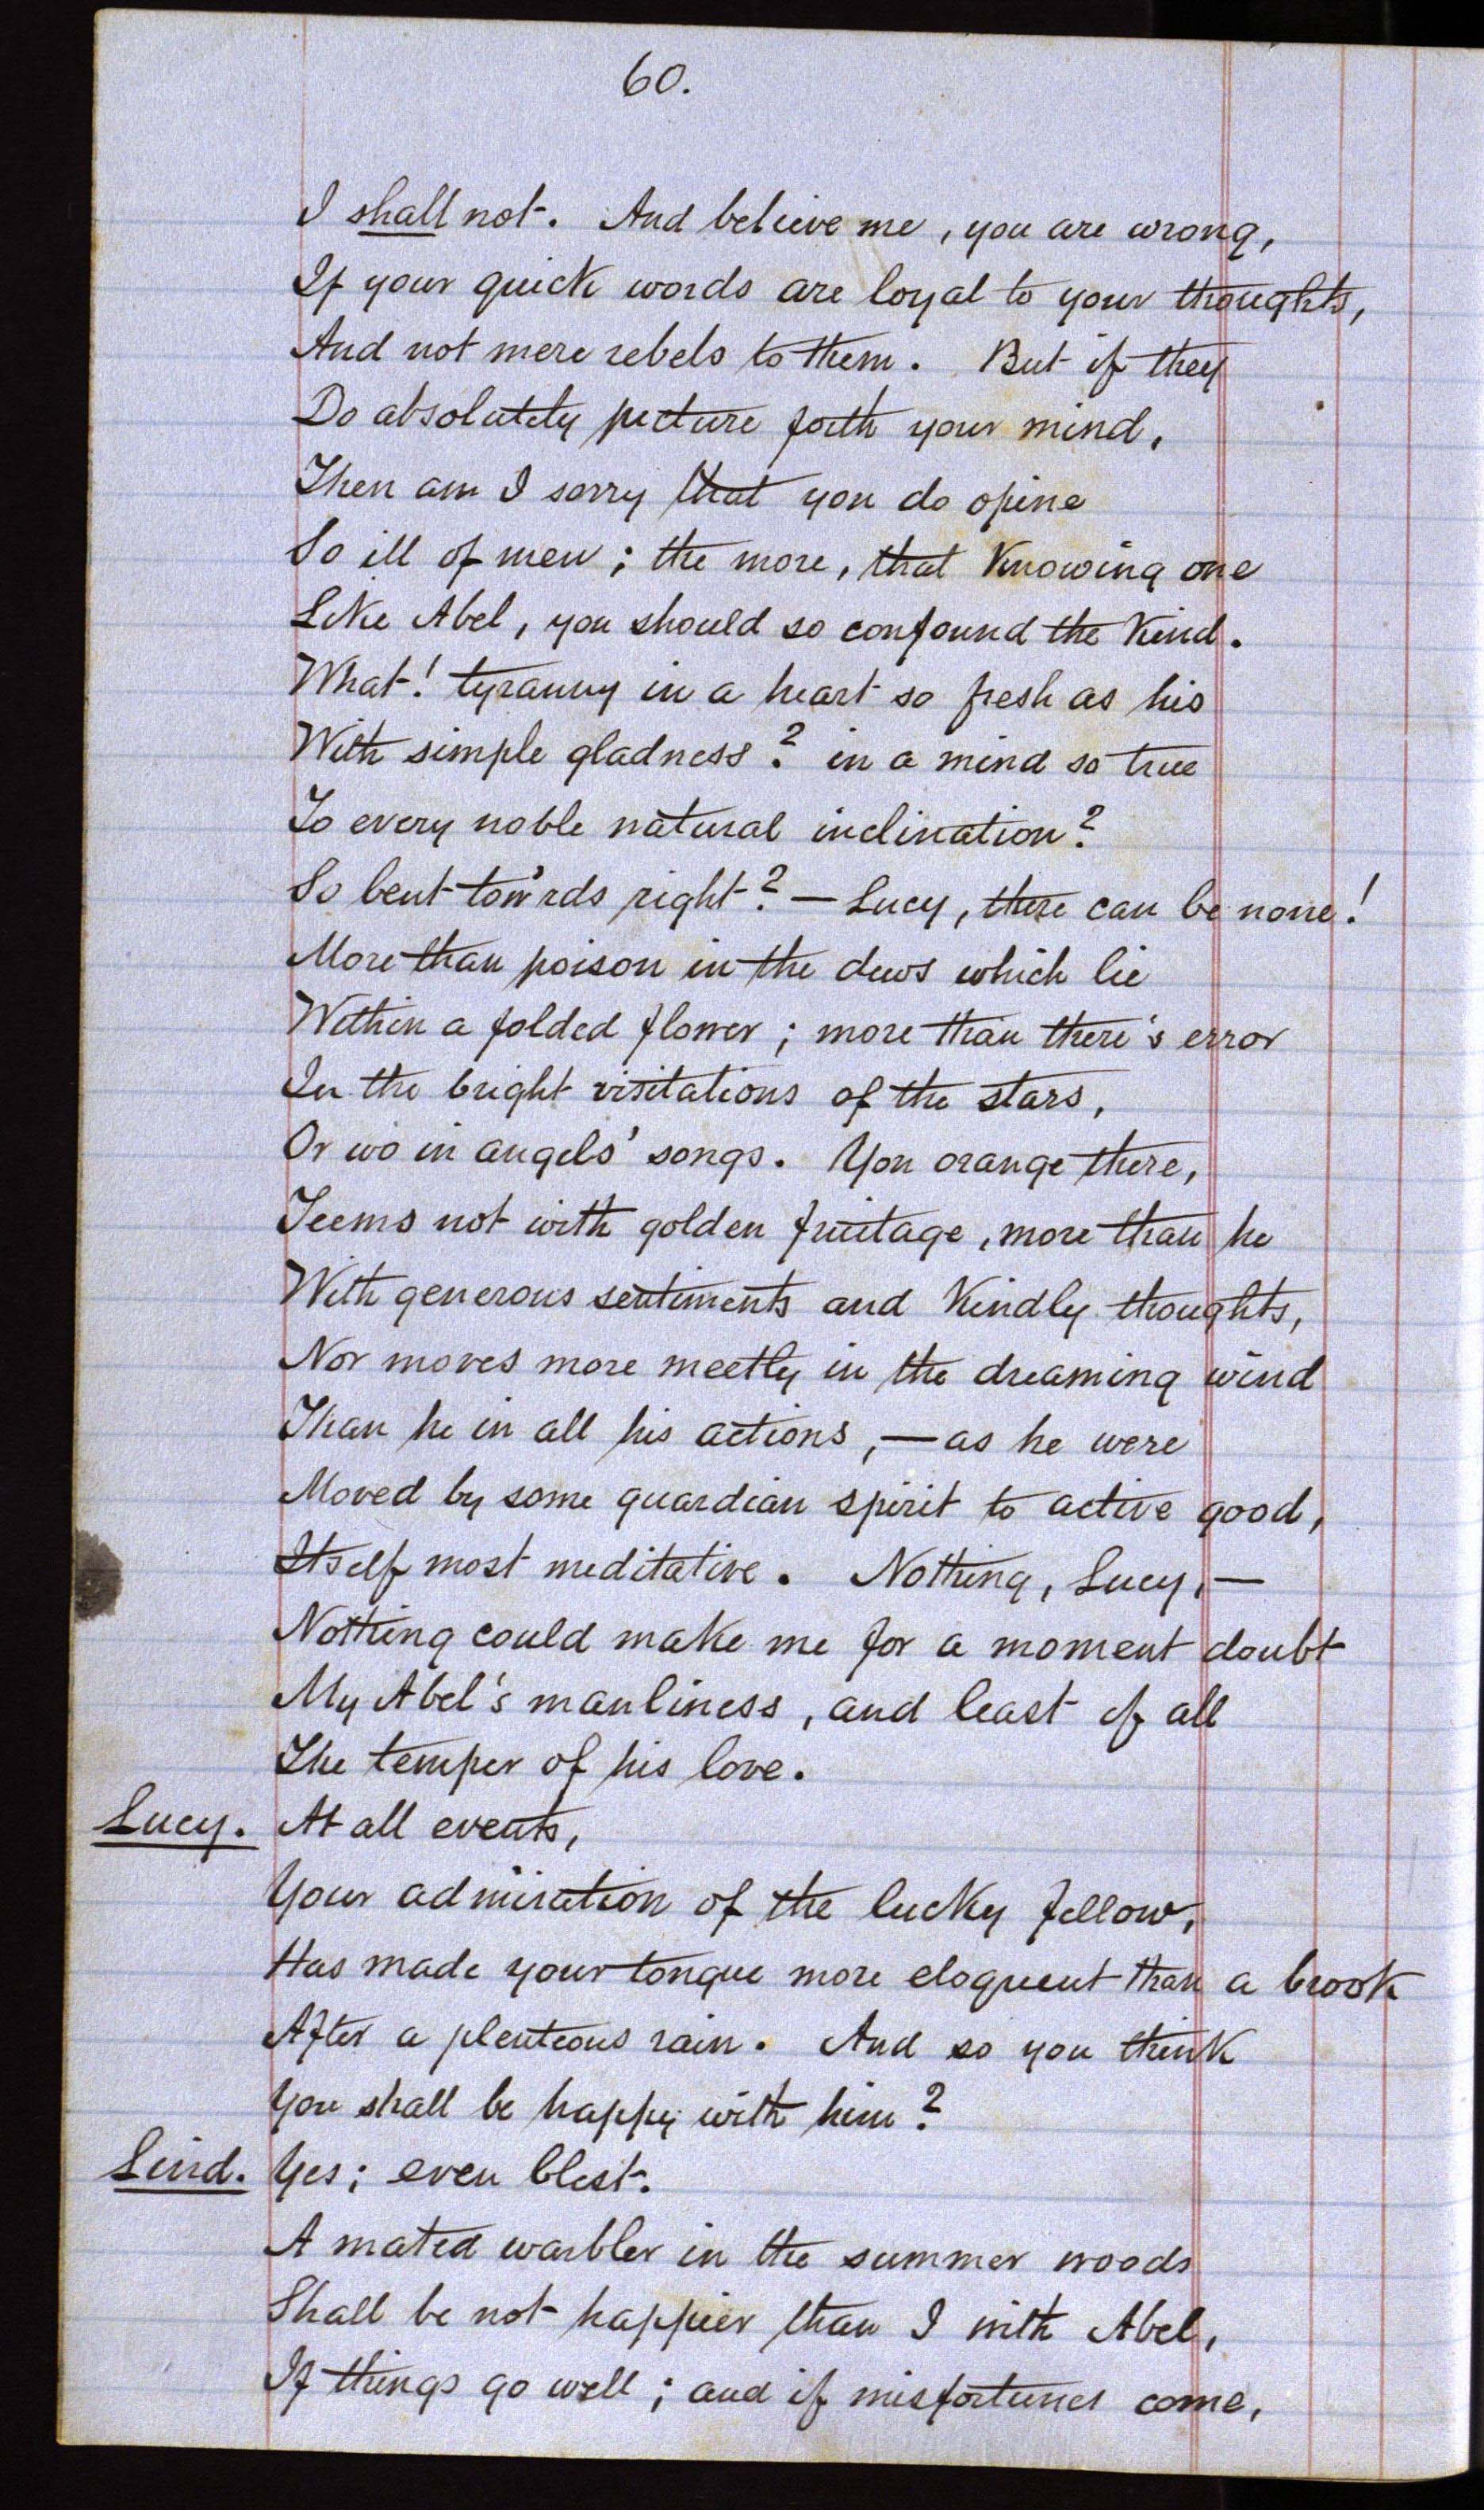 60.
I shall not. And believe me, you are wrong,
If your quick words are loyal to your thoughts,
And not mere rebels to them. But if they
Do absolutely picture forth your mind,
Then am I sorry that you do opine
So ill of men; the more, that knowing one
Like Abel, you should so confound the kind.
What! tyranny in a heart so fresh as his
With simple gladness? in a mind so true
To every noble natural inclination?
So bent tow'rds right? — Lucy, there can be none!
More than poison in the dews which lie
Within a folded flower; more than there's error
In the bright visitations of the stars,
Or wo in angels' songs. Yon orange there,
Teems not with golden fruitage, more than he
With generous sentiments and kindly thoughts,
Nor moves more meetly in the dreaming wind
Than he in all his actions, — as he were
Moved by some guardian spirit to active good,
Itself most meditative. Nothing, Lucy, —
Nothing could make me for a moment doubt
My Abel's manliness, and least of all
The temper of his love.
Lucy. At all events,
Your admiration of the lucky fellow,
Has made your tongue more eloquent than a brook
After a plenteous rain. And so you think
You shall be happy with him?
Lind. Yes; even blest.
A mated warbler in the summer woods
Shall be not happier than I with Abel,
If things go well; and if misfortunes come,